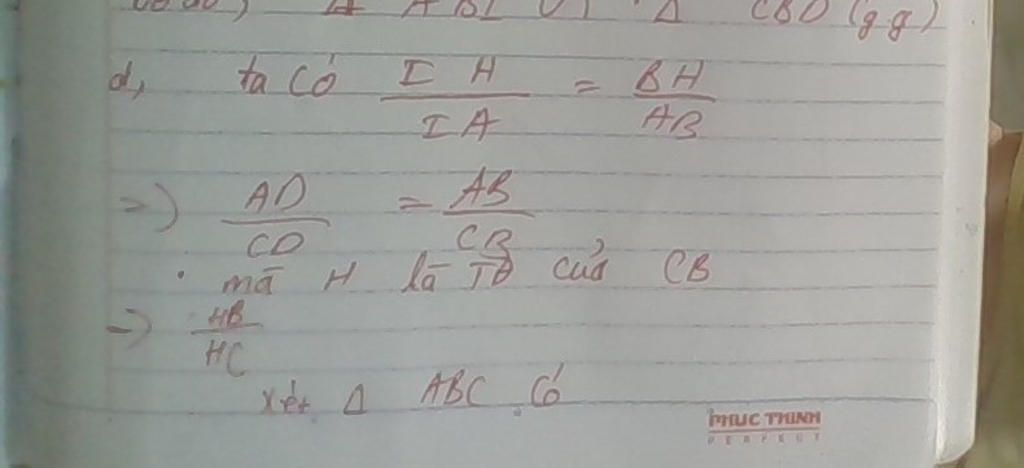 Δ ABI ∽ Δ CBD (g g)
d, ta có IH/IA = BH/AB
=> AD/CD = AB/CB
mà H là TĐ của CB
=> HB/HC
xét Δ ABC có
PHUC THINH
PERFECT